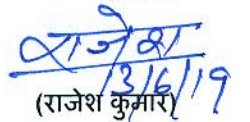 राजेश
13/6/19
(राजेश कुमार)